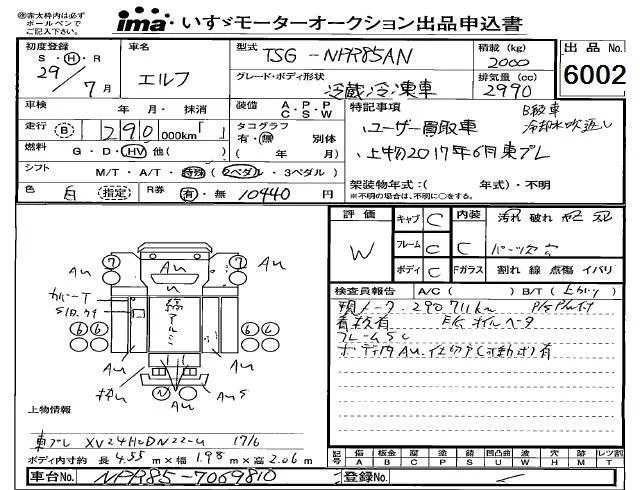 ※赤太枠内は必ず
ボールペンで
ご記入下さい。
ima いすゞモーターオークション出品申込書
初度登録
S・H・R
29年7月
車名
エルフ
型式
TSG-NPR85AN
積載 (kg)
2000
グレード・ボディ形状
冷蔵冷凍車
排気量 (cc)
2990
出品No.
6002
車検 年・月・抹消
装備 A・P・P
C・S・W
走行 (B) 290 000km「 」
タコグラフ
有・無 別体
( 年 月)
燃料 G・D・HV 他( )
シフト M/T・A/T・特殊 (2ペダル・3ペダル)
色 白 (指定) R券 有・無 10440 円
特記事項
B級車
冷却水吹返し
・ユーザー買取車
・上物2017年6月東プレ
架装物年式:( 年式)・不明
※不明の場合は、不明に○をする。
評価 キャブ C 内装 汚れ 破れ
W フレーム C C
ボディ C Fガラス 割れ 線 点傷 イバリ
検査員報告 A/C( ) B/T(
現メータ 290711km
看板有 E/G オイルベータ
フレームSC
ボディ内AU
7 Au Au 7 Au
カバーT
Au
アルミ
6 6 6 6
Au Au
Au
N N
Au AuS
上物情報
東プレ 17/6
ボディ内寸約 長 4.55 m×幅 1.98 m×高 2.06 m
記号 傷 板金 腐 塗 錆 凹 凸凹曲 波 穴 跡 レンズ割
A B C P S U W H M T
車台No. NPR85-7069810
登録No.